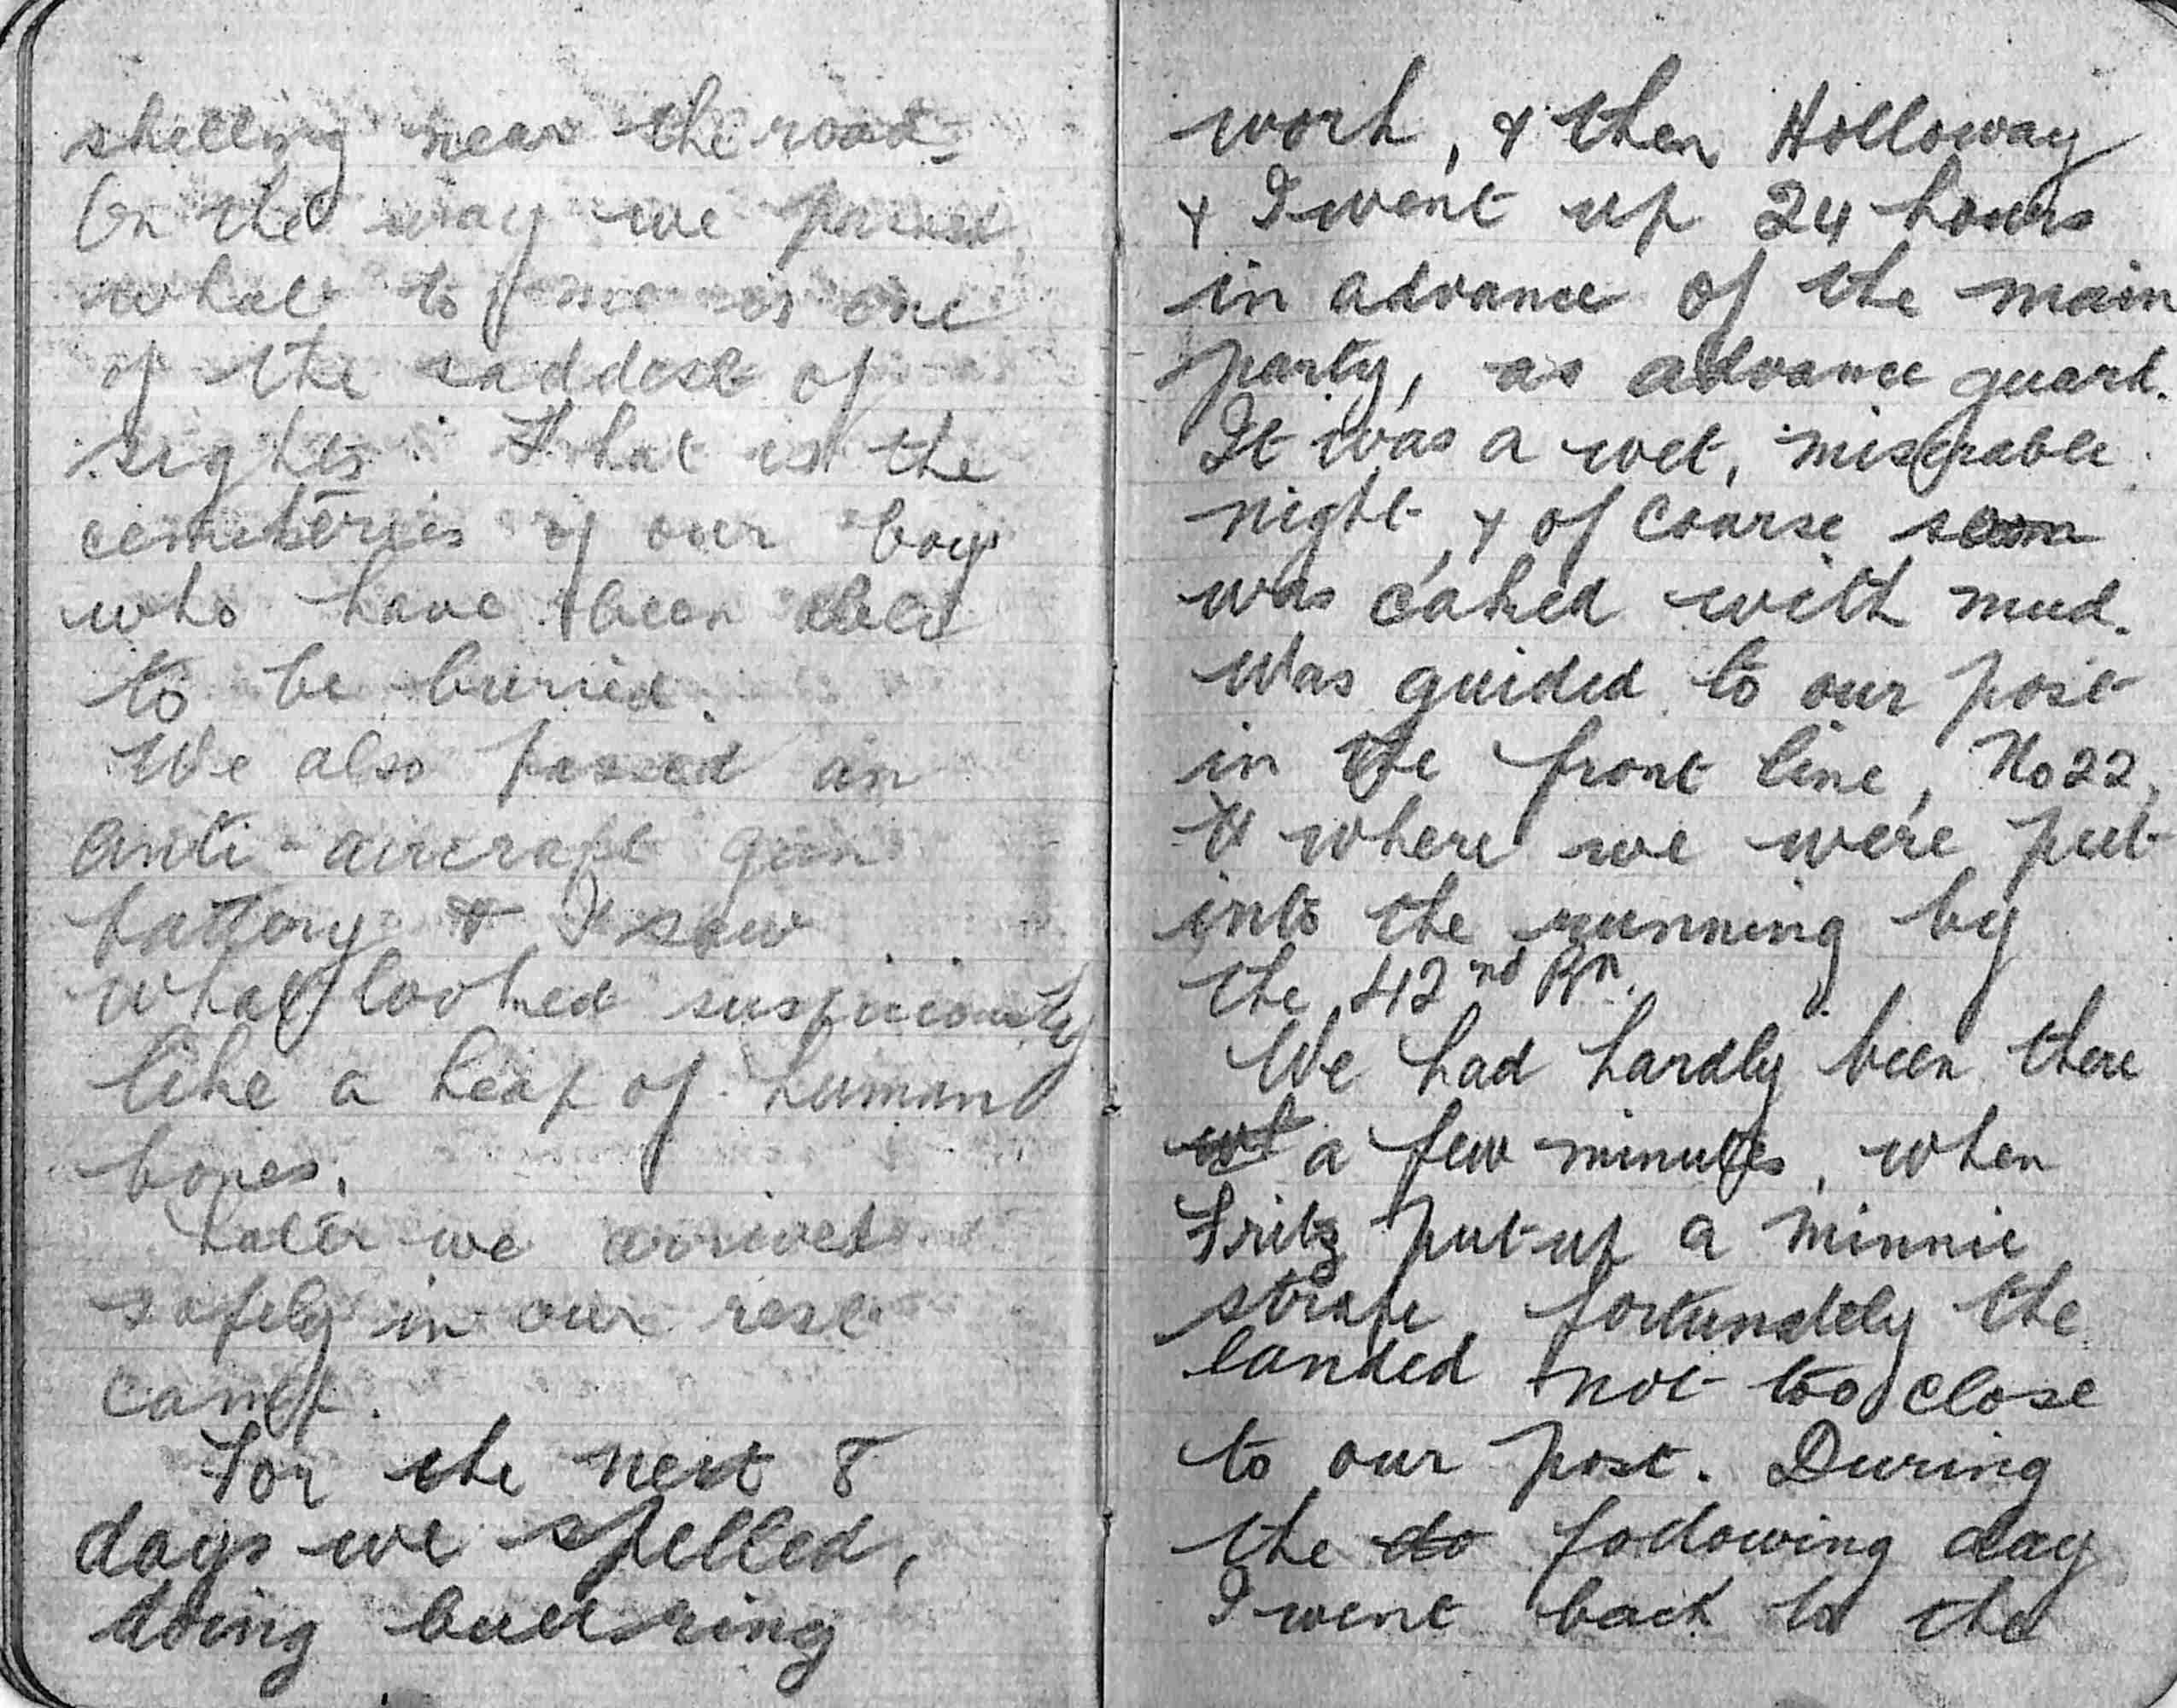 shelling near the road.
On the way we passed
what to me is one
of the saddest of
sights. That is the
cemeteries of our boys
who have been able
to be buried.
We also passed an
anti-aircraft gun
battery & I saw
what looked suspiciously
like a heap of human
bones.
Later we arrived
safely in our rest
camp.
For the next 8
days we spelled,
doing bullring
work, & then Holloway
& I went up 24 hours
in advance of the main
party, as advance guard.
It was a wet, miserable
night, & of coarse soon
was caked with mud.
Was guided to our post
in the front line, No 22,
& where we were put
into the running by
the 42nd Bn.
We had hardly been there
a few minutes, when
Fritz put up a minnie
strafe, fortunately the
landed not too close
to our post. During
the do following day
I went back to the